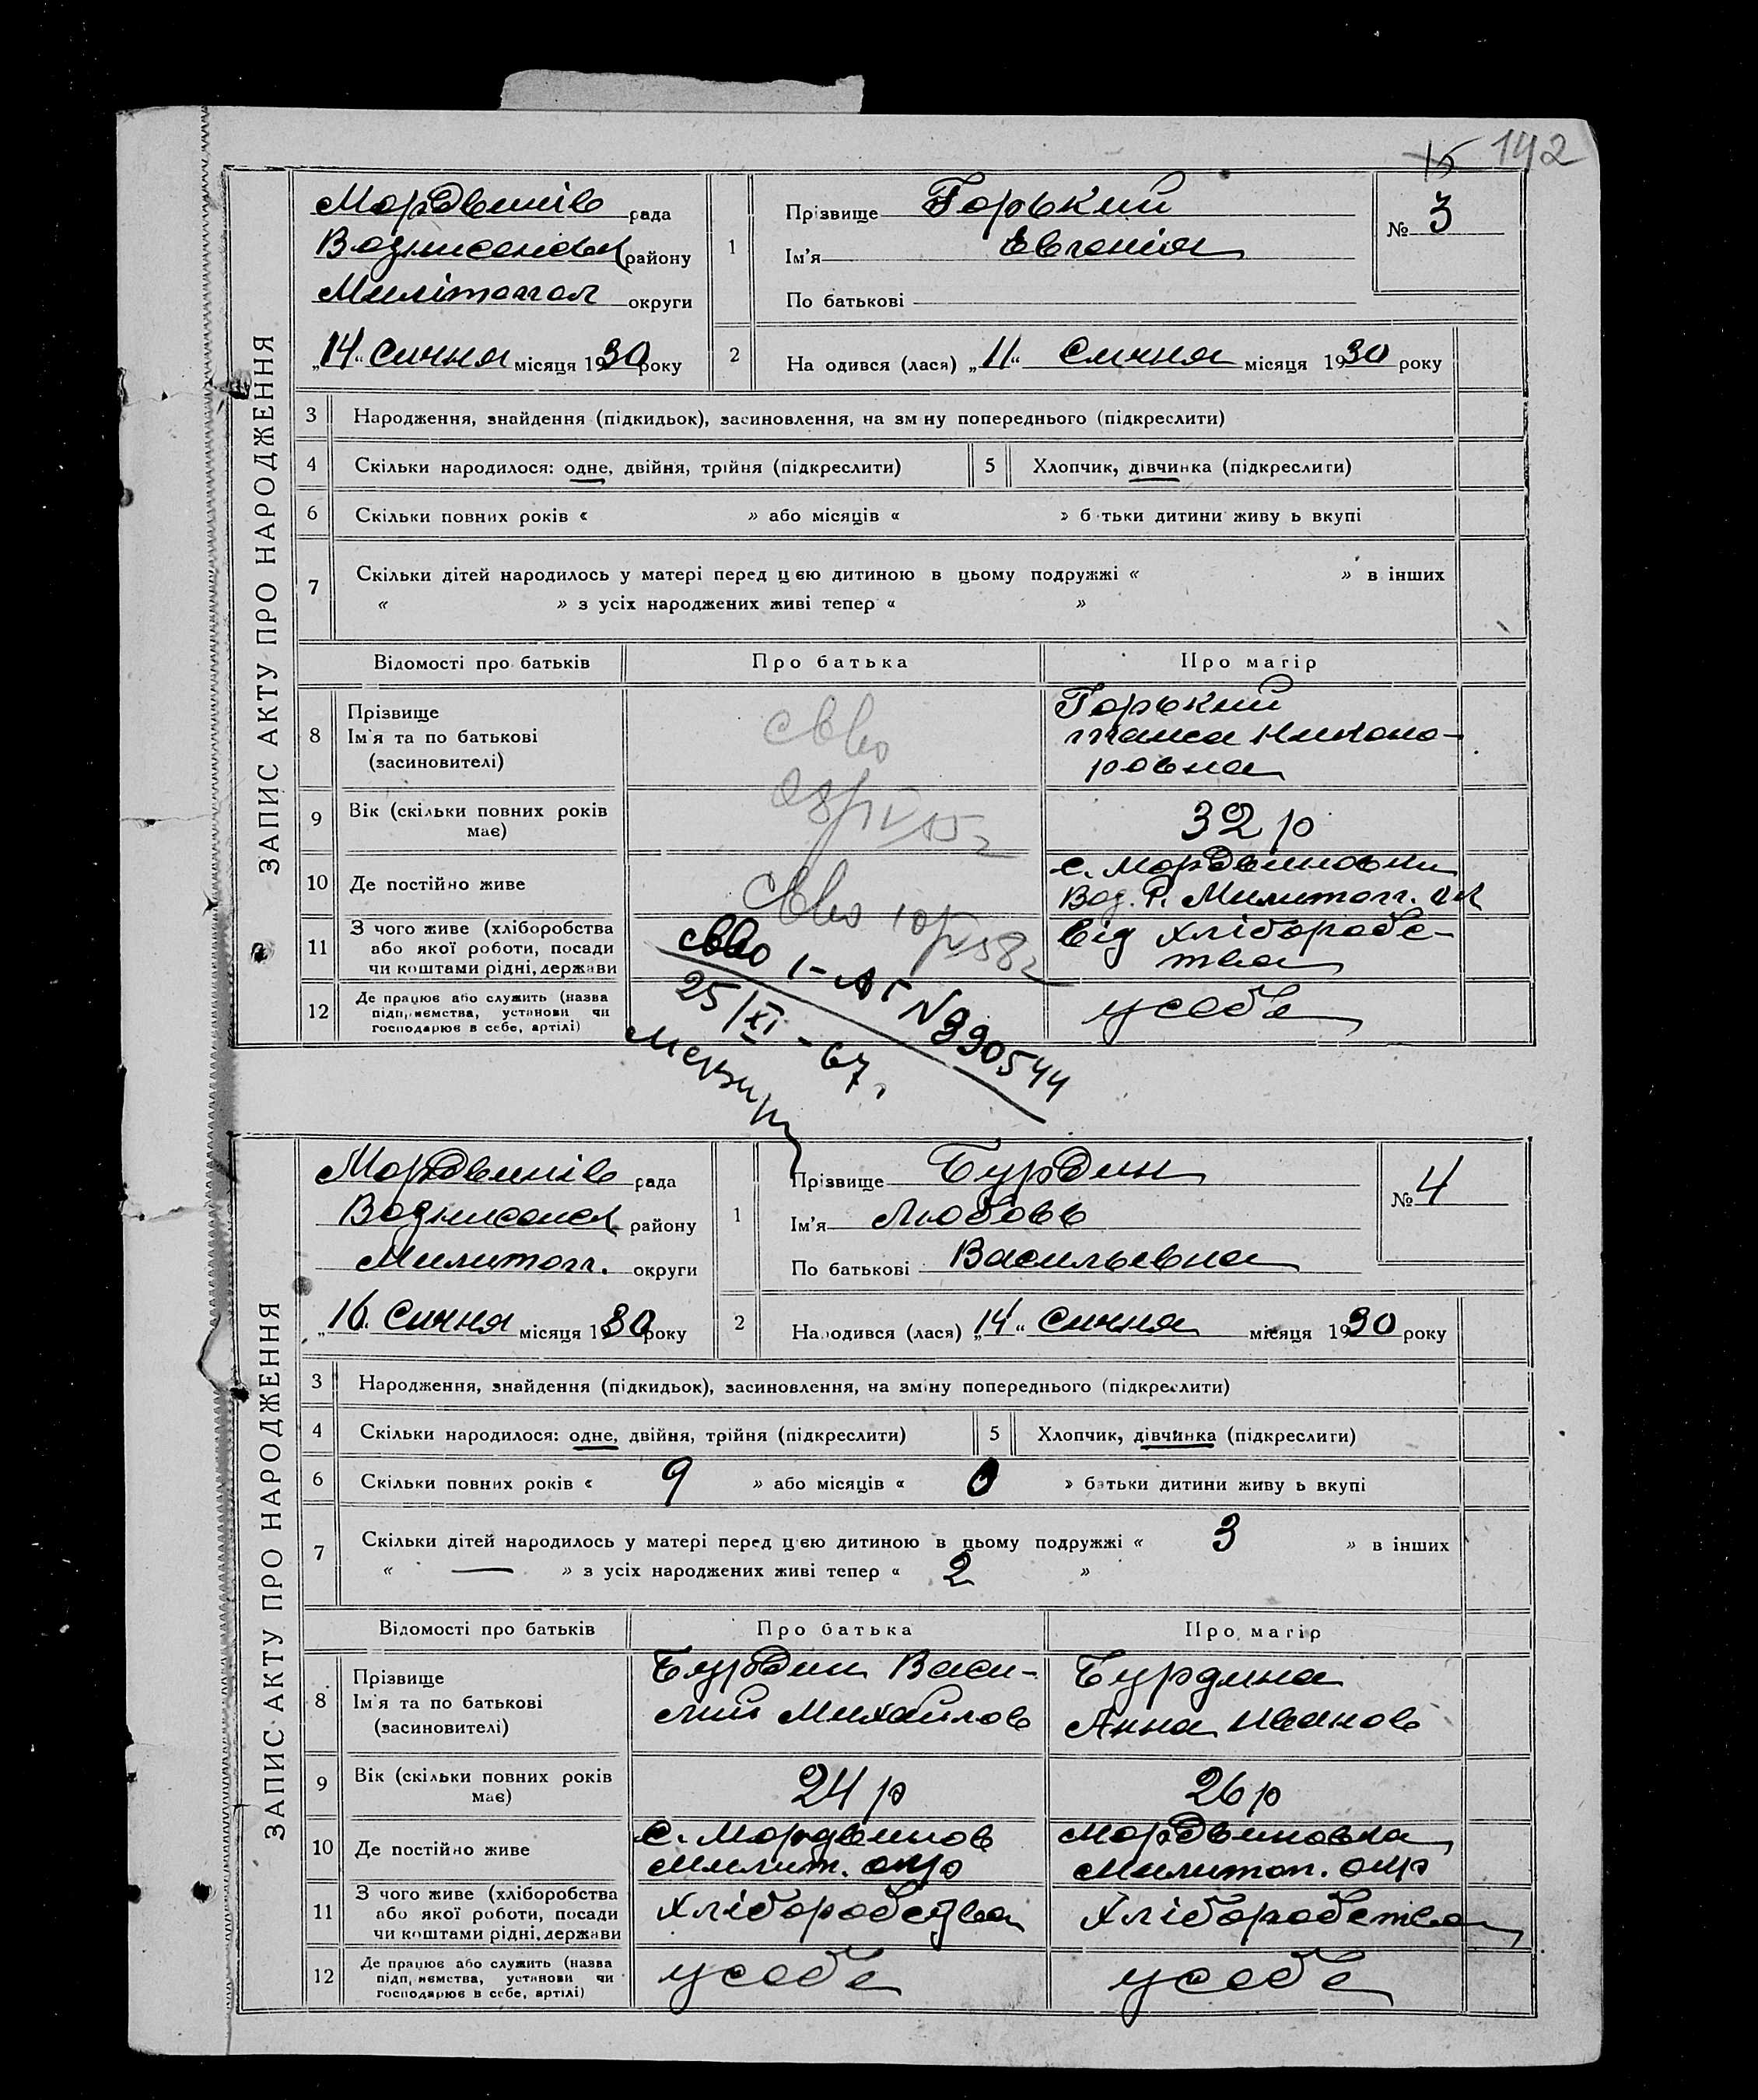 15 142
ЗАПИС АКТУ ПРО НАРОДЖЕННЯ
Мордвинів рада
району
округи
„14“ Сичня місяця 1930 року
1
Прізвище Горький
Ім'я Евгенія
По батькові
№ 3
2
На одився (лася) „11“ Сичня місяця 1930 року
3 Народження, знайдення (підкидьок), засиновлення, на зм ну попереднього (підкреслити)
4 Скільки народилося: одне, двійня, трійня (підкреслити) 5 Хлопчик, дівчинка (підкреслити)
6 Скільки повних років « » або місяців « » б тьки дитини живу ь вкупі
7 Скільки дітей народилось у матері перед цею дитиною в цьому подружжі « » в інших
« » з усіх народжених живі тепер « »
Відомості про батьків Про батька Про матір
8 Прізвище
Ім'я та по батькові
(засиновителі)
Горький
Никоно-
ровна
9 Вік (скільки повних років
має)
32 р
10 Де постійно живе
с. Мордвиновки
11 З чого живе (хліборобства
або якої роботи, посади
чи коштами рідні, держави
від хліборобс-
тва
12 Де працює або служить (назва
підприємства, установи чи
господарює в себе, артілі)
у себе
свво
свво
свво 1-АГ N 390544
25/XI - 67.
ЗАПИС АКТУ ПРО НАРОДЖЕННЯ
Мордвинів рада
району
Милитоп. округи
„16“ Сичня місяця 1930 року
1
Прізвище Бурдин
Ім'я Любовь
По батькові Васильевна
№ 4
2
Народився (лася) „14“ сичня місяця 1930 року
3 Народження, знайдення (підкидьок), засиновлення, на зміну попереднього (підкреслити)
4 Скільки народилося: одне, двійня, трійня (підкреслити) 5 Хлопчик, дівчинка (підкреслити)
6 Скільки повних років « 9 » або місяців « 0 » батьки дитини живу ь вкупі
7 Скільки дітей народилось у матері перед цею дитиною в цьому подружжі « 3 » в інших
« — » з усіх народжених живі тепер « 2 »
Відомості про батьків Про батька Про матір
8 Прізвище
Ім'я та по батькові
(засиновителі)
Бурдин Васи-
лий Михайлов
Бурдина
Анна Иванов
9 Вік (скільки повних років
має)
24 р
26 р
10 Де постійно живе
с. Мордвинов
Милит. окр
Мордвиновка
Милитоп. окр
11 З чого живе (хліборобства
або якої роботи, посади
чи коштами рідні, держави
Хліборобства
Хліборобства
12 Де працює або служить (назва
підприємства, установи чи
господарює в себе, артілі)
у себе
у себе